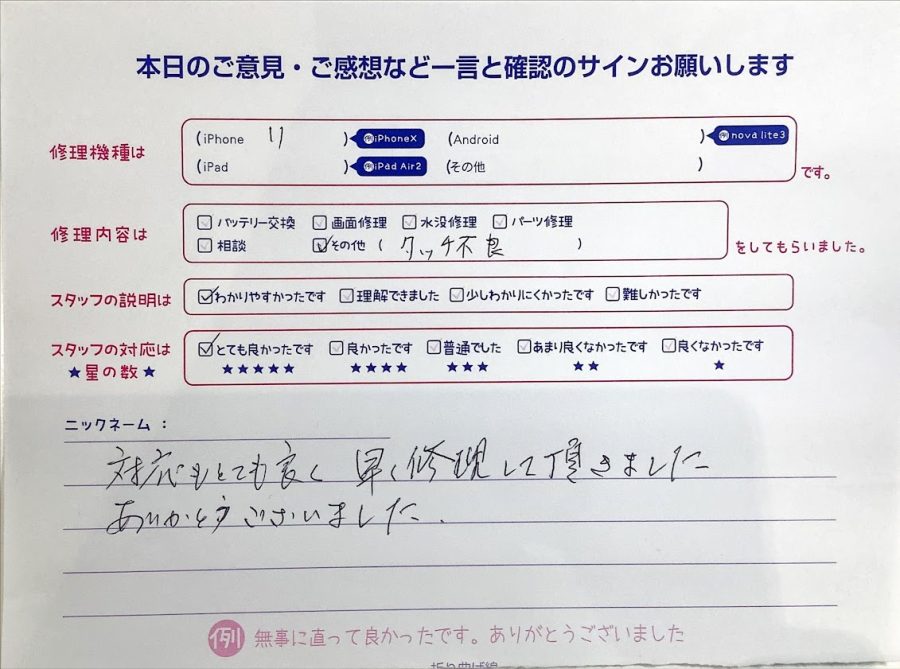 本日のご意見・ご感想など一言と確認のサインお願いします
修理機種は (iPhone 11 ) 例iPhoneX (Android ) 例nova lite3
(iPad ) 例iPad Air2 (その他 ) です。
修理内容は バッテリー交換 画面修理 水没修理 パーツ修理
相談 その他 ( タッチ不良 ) をしてもらいました。
スタッフの説明は わかりやすかったです 理解できました 少しわかりにくかったです 難しかったです
スタッフの対応は とても良かったです 良かったです 普通でした あまり良くなかったです 良くなかったです
★星の数★ ★★★★★ ★★★★ ★★★ ★★ ★
ニックネーム：
対応もとても良く 早く修理して頂きました
ありがとうございました.
例 無事に直って良かったです。ありがとうございました